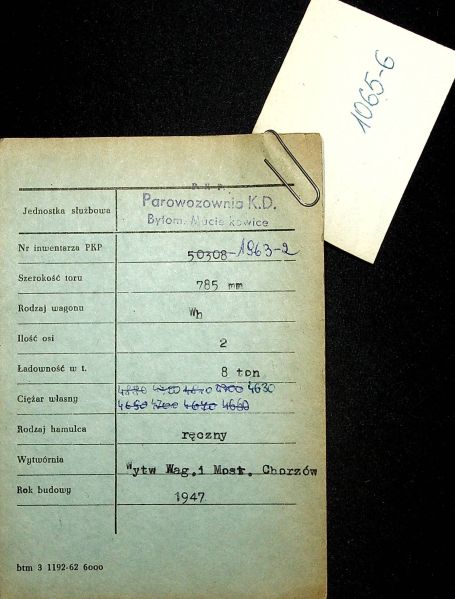 1065-6
P K P
Parowozownia K.D.
Jednostka służbowa
Bytom. Maciejkowice
Nr inwentarza PKP 50308-1963-2
Szerokość toru 785 mm
Rodzaj wagonu Wh
Ilość osi 2
Ładowność w t. 8 ton
4700 4630
Ciężar własny 4650 4700 4670 4660
Rodzaj hamulca ręczny
Wytwórnia Wytw Wag. i Most. Chorzów
Rok budowy 1947
btm 3 1192-62 6000